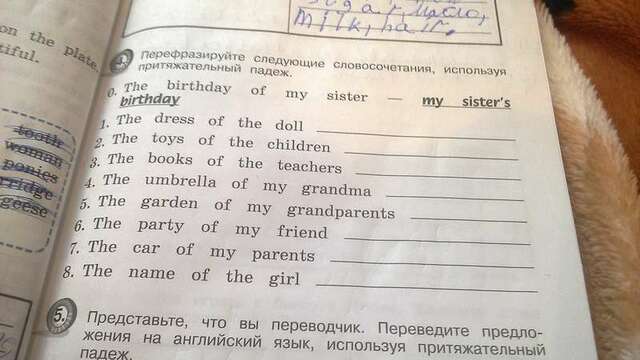 on the plate.
tiful.
tooth
woman
ponies
geese
milk,
Перефразируйте следующие словосочетания, используя
притяжательный падеж.
0. The birthday of my sister — my sister's
birthday
1. The dress of the doll
2. The toys of the children
3. The books of the teachers
4. The umbrella of my grandma
5. The garden of my grandparents
6. The party of my friend
7. The car of my parents
8. The name of the girl
5. Представьте, что вы переводчик. Переведите предло-
жения на английский язык, используя притяжательный
падеж.